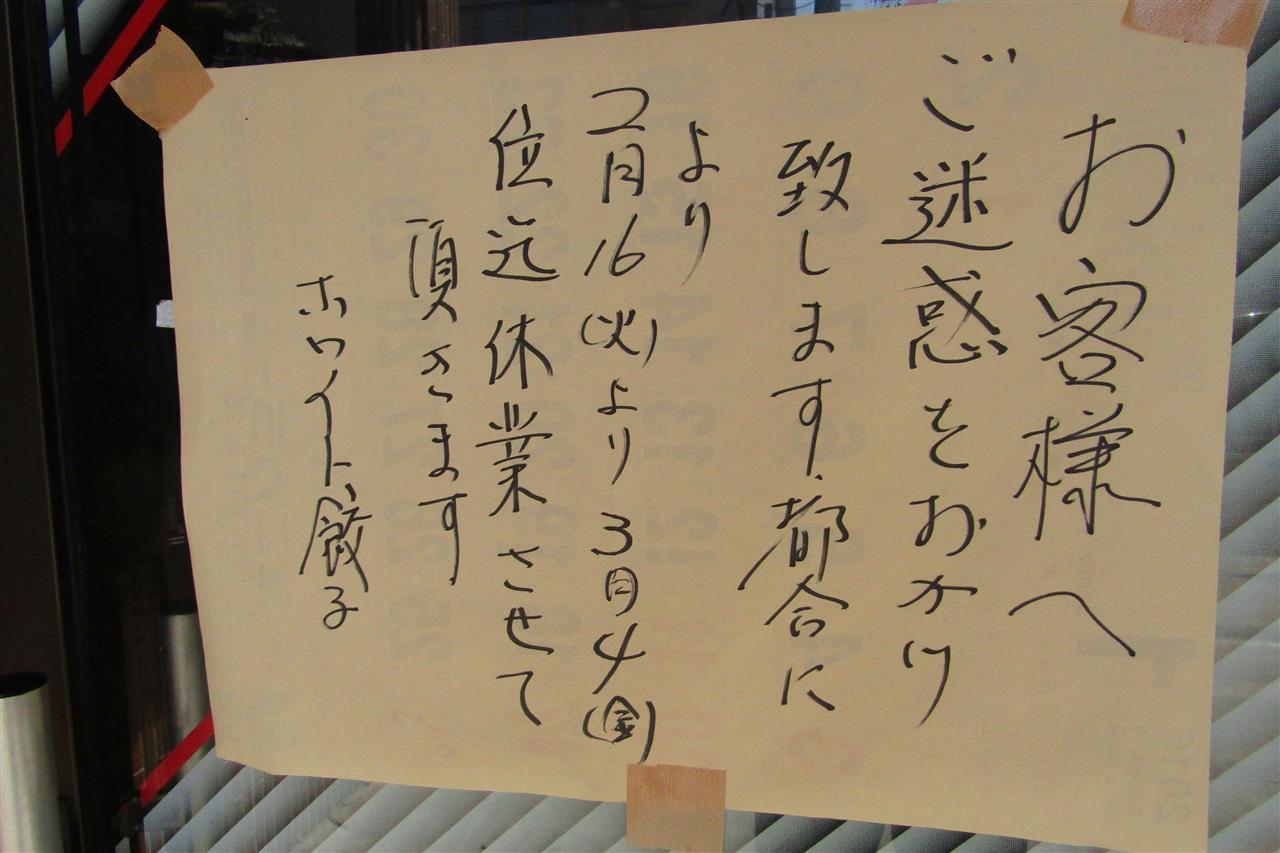 お客様へ
ご迷惑をおかけ
致します.都合に
より
2月16(火)より3月4(金)
位迄休業させて
頂きます
ホワイト餃子